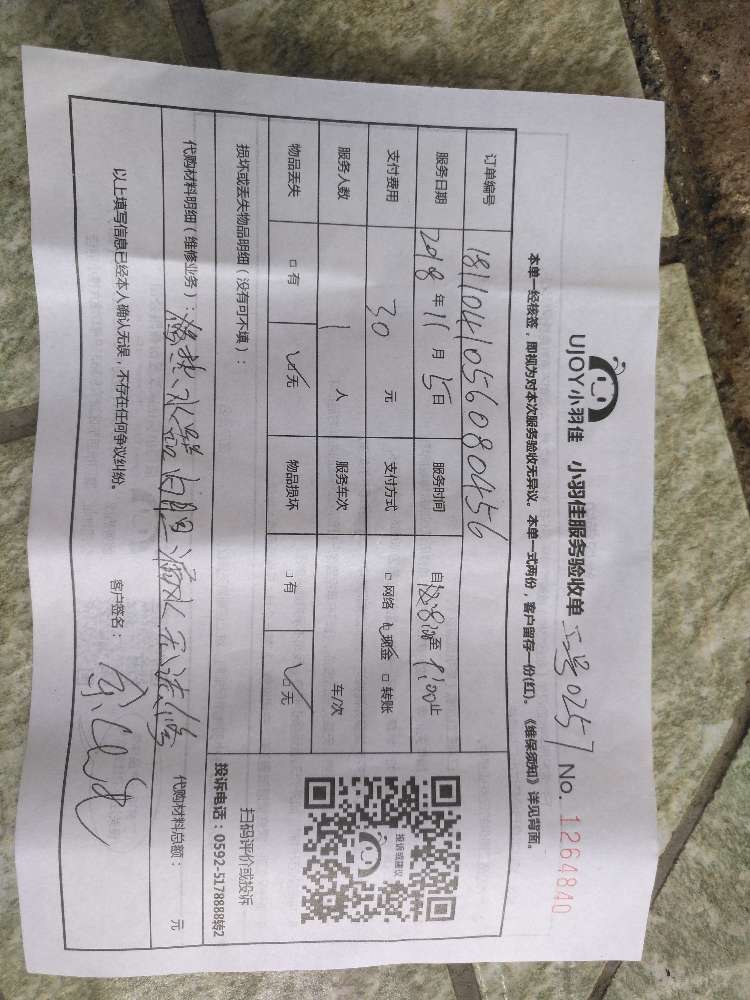 UJOY小羽佳 小羽佳服务验收单 工号0257 No. 1264840
本单一经核签，即视为对本次服务验收无异议。本单一式两份，客户留存一份(红)。《维保须知》详见背面。
订单编号 1811041056080456
服务日期 2018年11月5日 服务时间 自 至 1:00止
支付费用 30 元 支付方式 □网络 ☑现金 □转账
服务人数 1 人 服务车次 车/次
物品丢失 □有 ☑无 物品损坏 □有 ☑无
损坏或丢失物品明细（没有可不填）：
代购材料明细（维修业务）： 热水器 漏水无法修 代购材料总额： 元
以上填写信息已经本人确认无误，不存在任何争议纠纷。 客户签名：
投诉或建议
扫码评价或投诉
投诉电话：0592-5178888转2